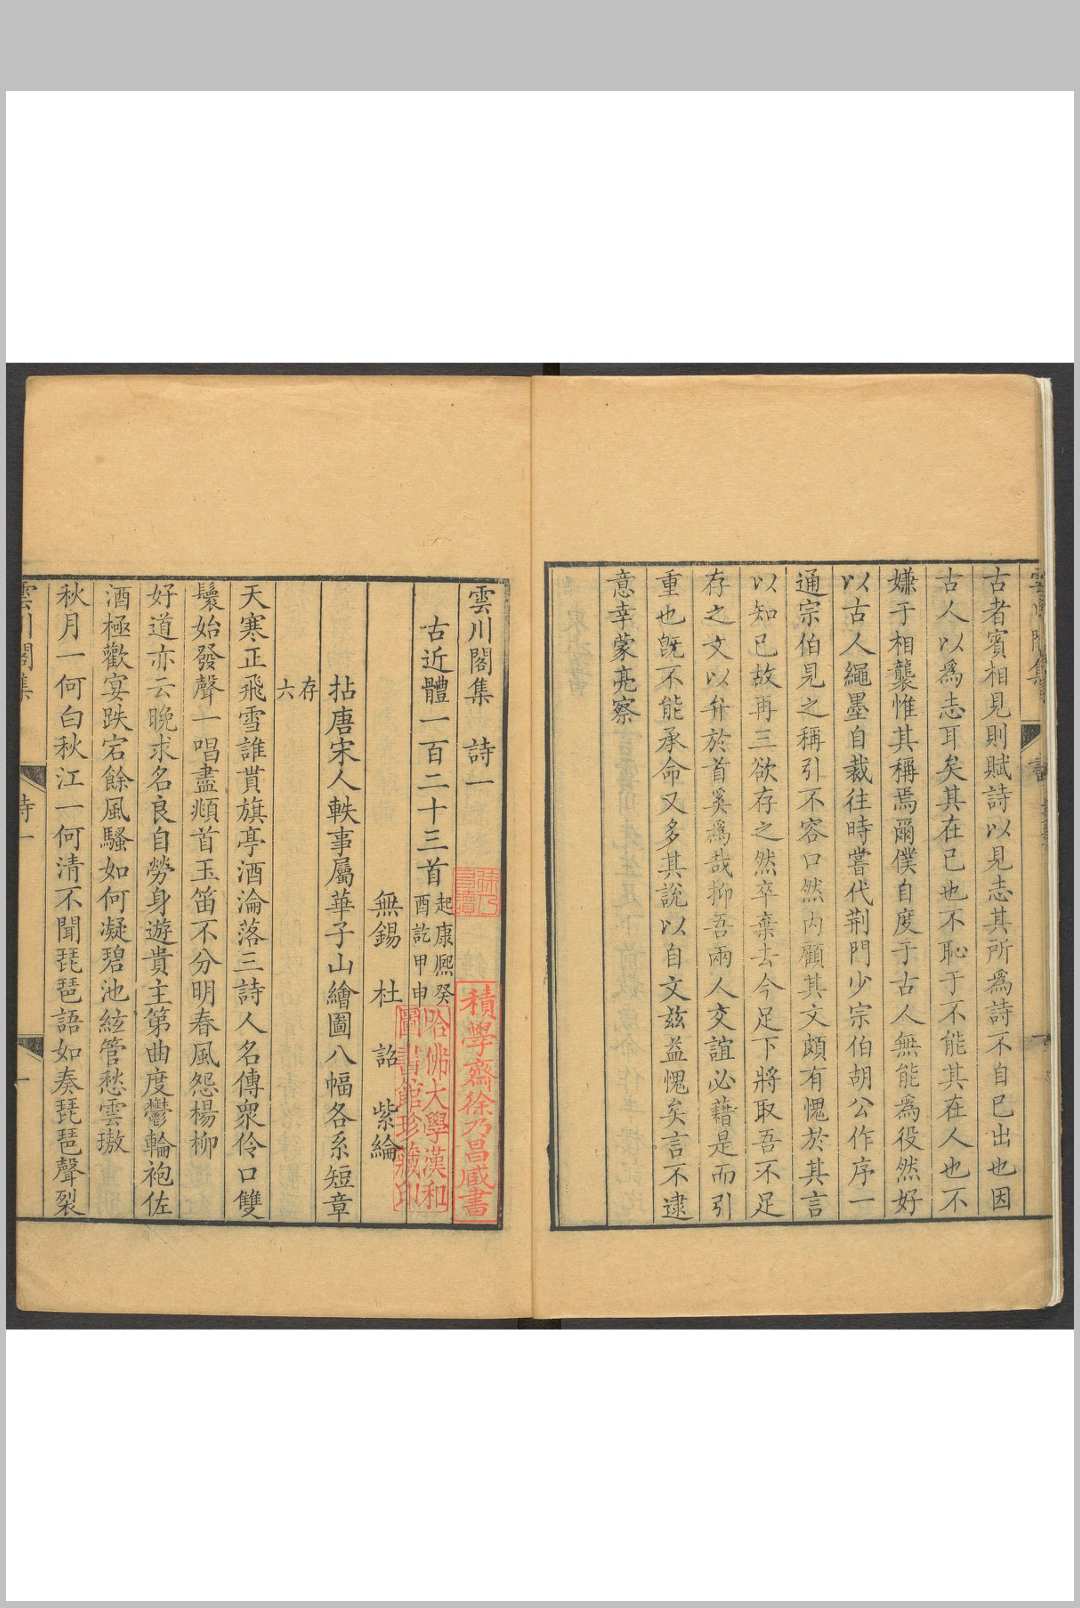 古者賓相見則賦詩以見志其所爲詩不自已出也因
古人以爲志耳矣其在已也不恥于不能其在人也不
嫌于相襲惟其稱焉爾僕自度于古人無能爲役然好
以古人繩墨自裁往時嘗代荆門少宗伯胡公作序一
通宗伯見之稱引不容口然内顧其文頗有愧於其言
以知已故再三欲存之然卒棄去今足下將取吾不足
存之文以弁於首奚爲哉抑吾兩人交誼必藉是而引
重也旣不能承命又多其說以自文兹益愧矣言不逮
意幸蒙亮察
雲川閣集 詩一
古近體一百二十三首起康熙癸
酉訖甲申
無錫 杜 詔 紫綸
積學齋徐乃昌藏書
哈佛大學漢和
圖書館珍藏印
拈唐宋人軼事屬華子山繪圖八幅各系短章
存
六
天寒正飛雪誰貰旗亭酒淪落三詩人名傳衆伶口雙
鬟始發聲一唱盡頫首玉笛不分明春風怨楊柳
好道亦云晚求名良自勞身遊貴主第曲度鬱輪袍佐
酒極歡宴跌宕餘風騷如何凝碧池絃管愁雲璈
秋月一何白秋江一何清不聞琵琶語如奏琵琶聲裂
雲川閣集 詩一 一